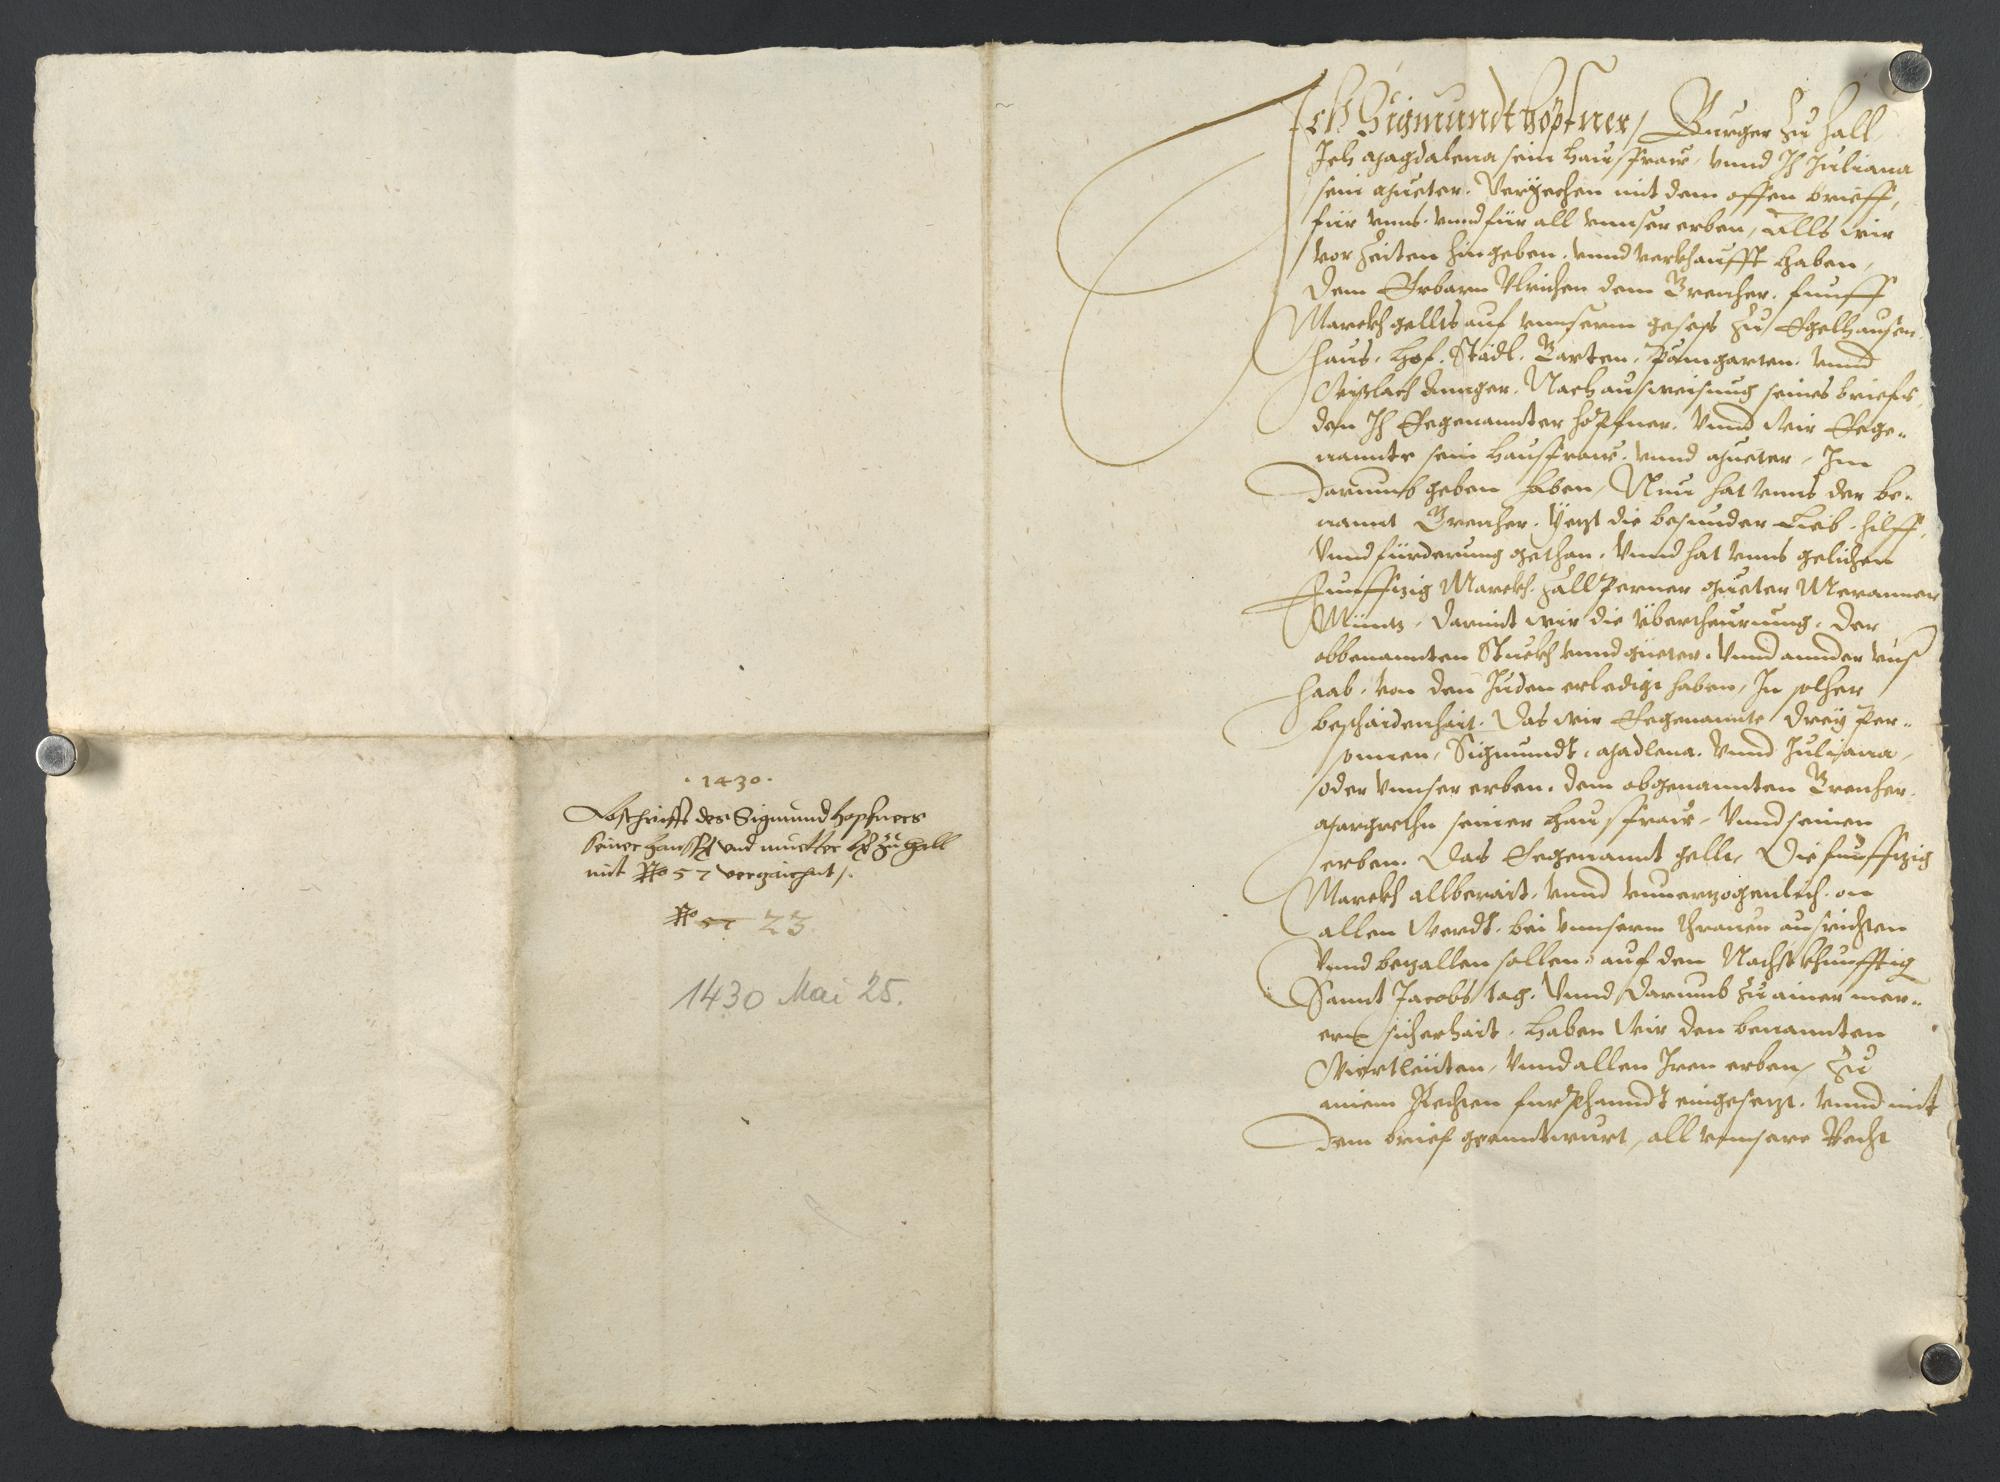 · 1430 ·
Abschrifft des Sigmund Hopfners
seiner hausfr vnd mueter zu Hall
mit No 57 verzaichnt /.
No 57 23.
1430 Mai 25.
Ich Sigmundt Höpfner / Burger zu Hall
Ich Magdalena sein Hausfraw, vnnd Ich Juliana
sein Mueter. Veryechen mit dem offen brieff,
für vnns. vnnd für all vnnser erben, Alls wir
vor Zeiten hingeben. vnnd verkhaufft haben,
dem Erbarn Vlrichen dem. funff
Marckh gellts auf vnnserm gesess zu Egelhausen
Haus, Hof. Städl. Garten. Pamgarten. vnnd
. Nach ausweisung seines briefs,
den Ich Egenannter Höpfner. Vnnd wir Ege-
nannte sein Hausfraw. vnnd Mueter, Im
darumb geben haben, Nun hat vnns der be-
nannt. Yetzt die besunder Lieb. hilff,
Vnnd fürderung gethan. Vnnd hat vnns gelichen
Funffzig Marckh. Zall Perner gueter Meranner
Müntz, damit wir die übertheurung. der
obbenannten Stuckh vnnd güeter. Vnnd annder vns
Haab. von den Juden erledigt haben, In solher
beschaidenhait. Das wir Egenannte drey Per-
sonnen, Sigmundt, Madlena. Vnnd Juliana,
oder vnnser erben. dem obgenannten
Margrethn seiner Hausfraw, Vnnd seinen
erben. Das Egenannt gellt, Die funffzig
Marckh allberait. vnnd vnuertzogenlich. on
allen. bei vnnsern threuen ausrichten
Vnnd bezallen sollen. auf den Nachstkhunfftig
Sannt Jacobs tag. Vnnd darumb zu ainer mer-
ern sicherhait. Haben wir den benannten
Wiertleüten, Vnnd allen Iren erben, Zu
ainem Rechten fürphanndt eingesetzt. vnnd mit
dem brief geanntwurt, all vnnsere Recht